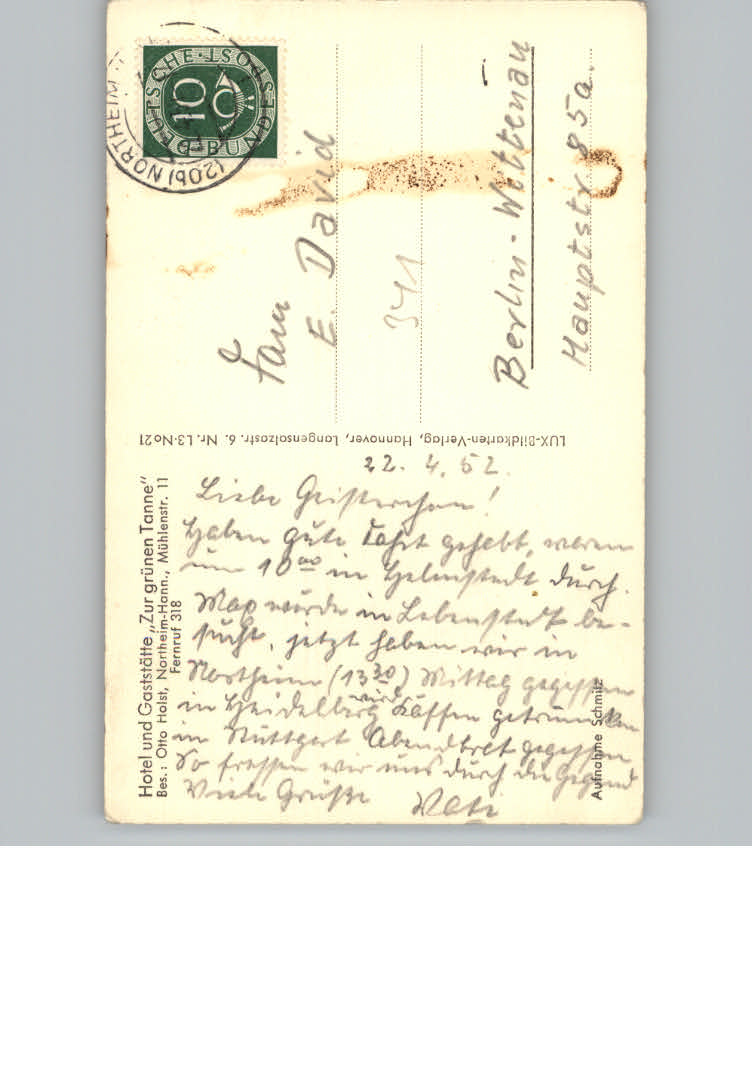 Hotel und Gaststätte „Zur grünen Tanne"
Bes.: Otto Holst, Northeim-Hann., Mühlenstr. 11
Fernruf 318
22. 4. 52.
Liebe
Haben gute Fahrt gehabt, waren
um 10⁰⁰ in Helmstedt durch.
Max wurde in Lebenstedt be-
sucht, jetzt haben wir in
Northeim (13³⁰) Mittag gegessen
in Heidelberg wird Kaffee getrunken
in Stuttgart Abendbrot gegessen
So fressen wir uns durch die Gegend
Viele Grüße
Aufnahme Schmitz
LUX-Bildkarten-Verlag, Hannover, Langensalzastr. 6. Nr. L3-No21
DEUTSCHE BUNDESPOST
10
(20b) NORTHEIM
Frau
E. David
341
Berlin-Wittenau
Hauptstr 85a.